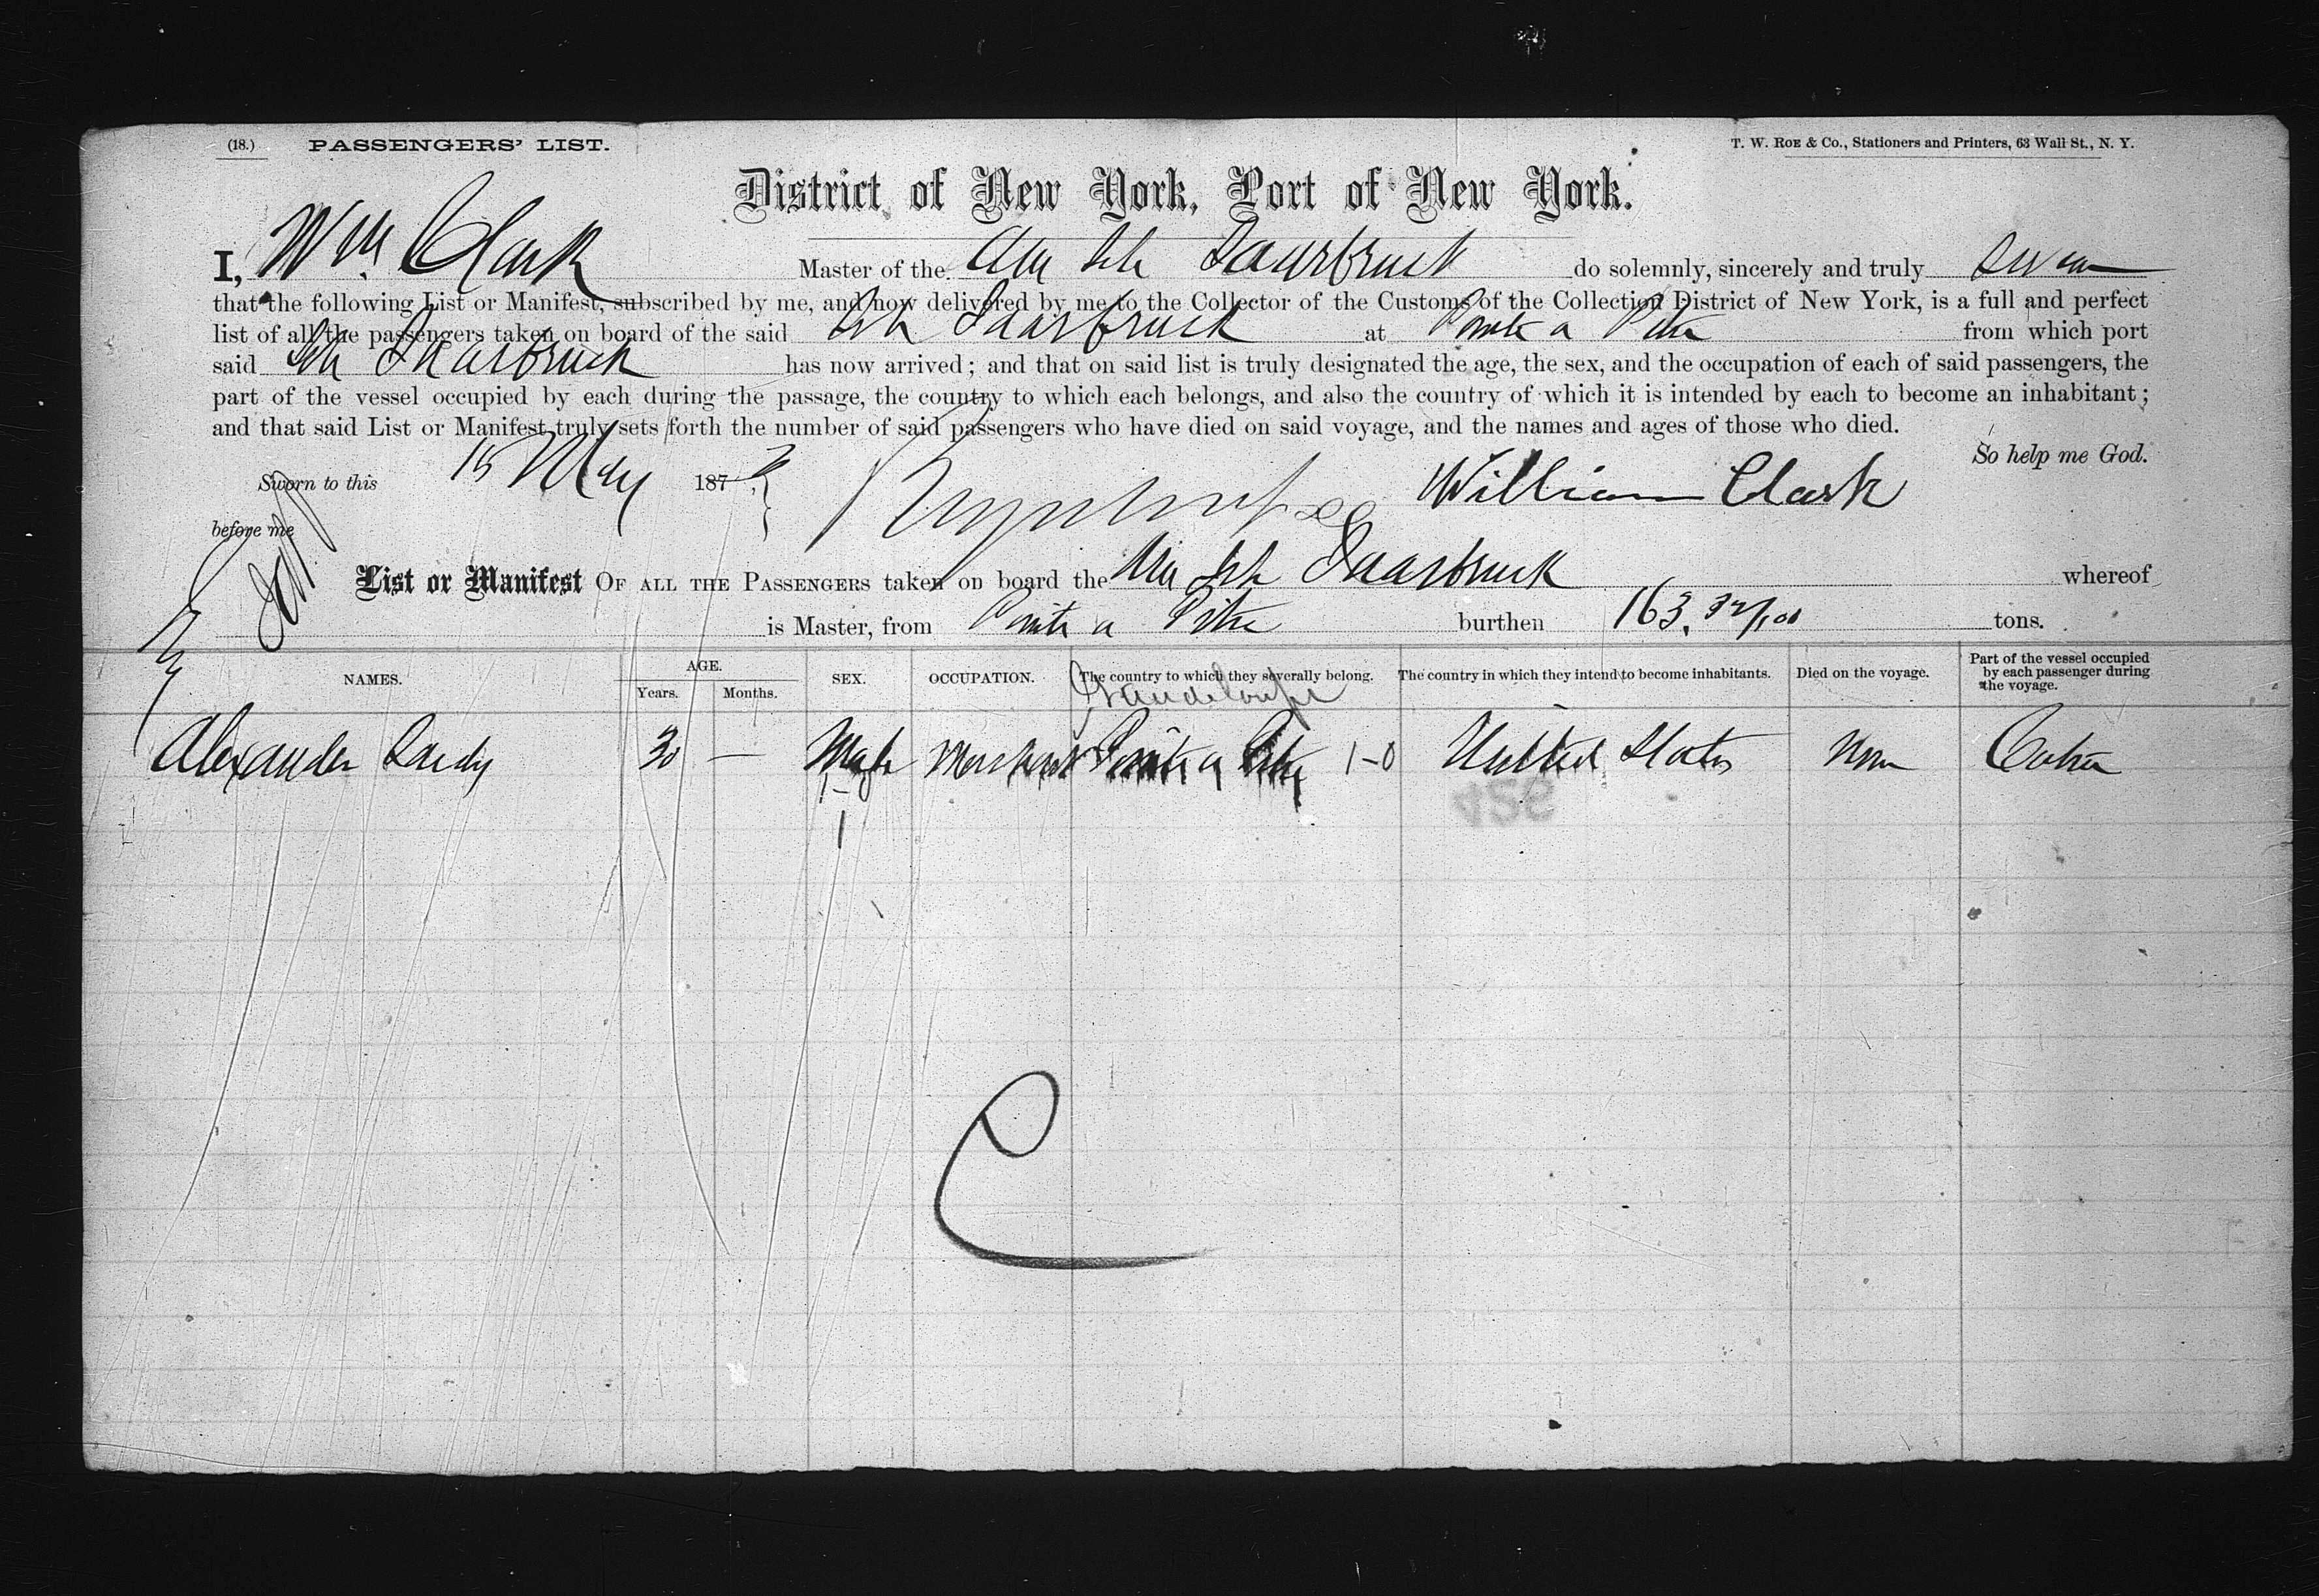 (18.) PASSENGERS' LIST. T. W. ROE & Co., Stationers and Printers, 63 Wall St., N. Y.
District of New York, Port of New York.
I, Wm Clark Master of the Am Sch Saarbruck do solemnly, sincerely and truly swear
that the following List or Manifest, subscribed by me, and now delivered by me to the Collector of the Customs of the Collection District of New York, is a full and perfect
list of all the passengers taken on board of the said Sch Saarbruck at Pointe a Pitre from which port
said Sch Saarbruck has now arrived; and that on said list is truly designated the age, the sex, and the occupation of each of said passengers, the
part of the vessel occupied by each during the passage, the country to which each belongs, and also the country of which it is intended by each to become an inhabitant;
and that said List or Manifest truly sets forth the number of said passengers who have died on said voyage, and the names and ages of those who died.
So help me God.
Sworn to this 15 May 187 William Clark
before me
List or Manifest OF ALL THE PASSENGERS taken on board the Am Sch Saarbruck whereof
is Master, from Pointe a Pitre burthen 163. 32/100 tons.
NAMES. AGE. Years. Months. SEX. OCCUPATION. The country to which they severally belong. The country in which they intend to become inhabitants. Died on the voyage. Part of the vessel occupied by each passenger during the voyage.
Guadeloupe
Alexander 30 — Male Merchant Pointe a Pitre 1-0 United States None Cabin
1